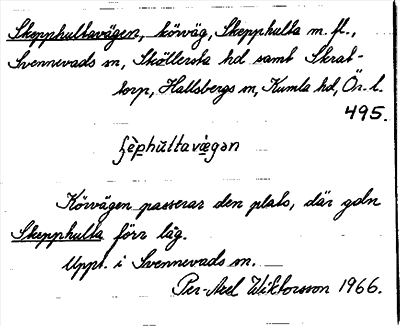 Skepphultavägen, körväg, Skepphulta m. fl.,
Svennevads sn, Sköllersta hd samt Skrat-
torp, Hallsbergs sn, Kumla hd, Ör. l.
495.
Körvägen passerar den plats, där gdn
Skepphulta förr låg.
Uppt. i Svennevads sn.
Per-Axel Wiktorsson 1966.